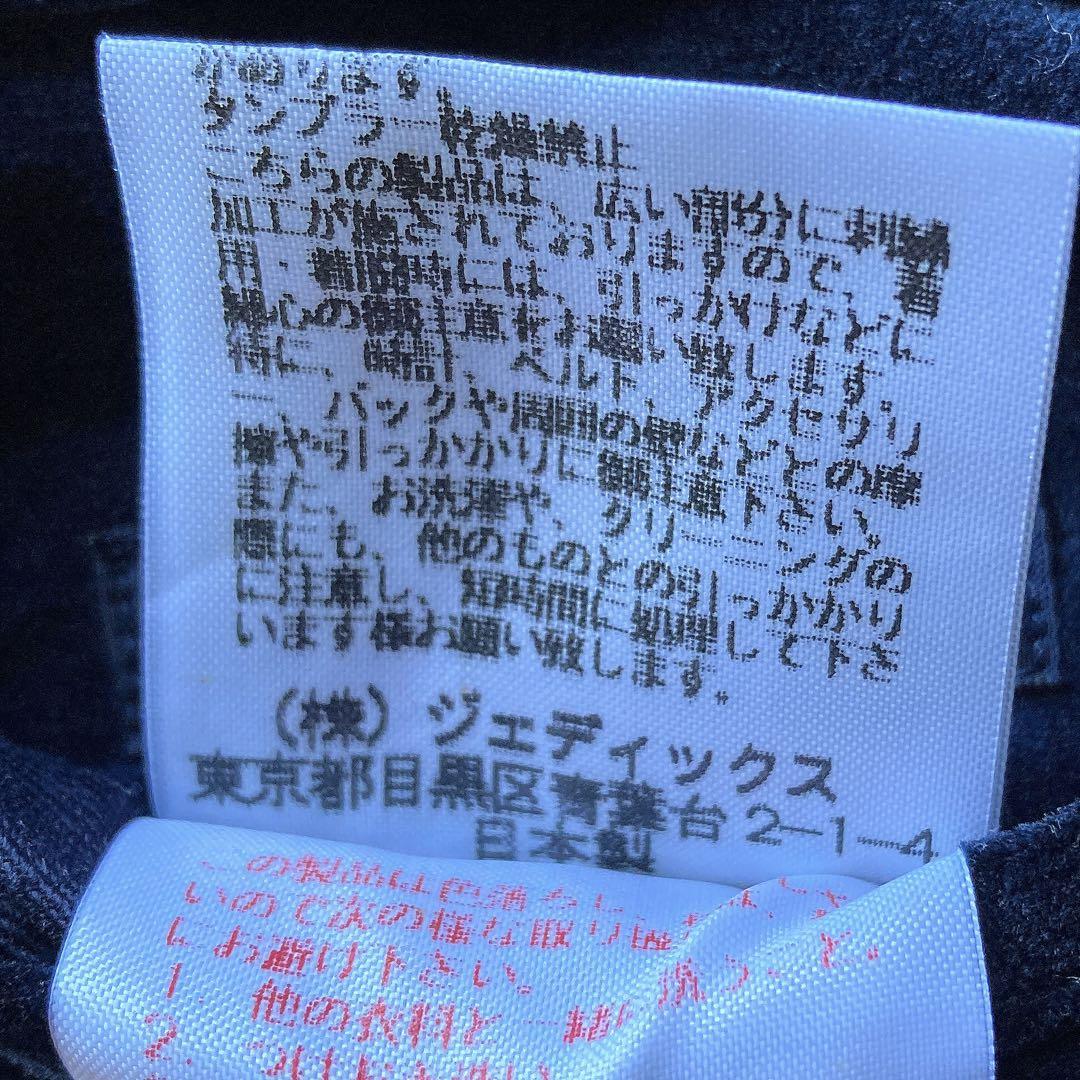 があります。
タンブラー乾燥禁止
こちらの製品は、広い部分に刺繍
加工が施されておりますので、着
用・着脱時には、引っかけなどに
細心の御注意をお願い致します。
特に、時計、ベルト、アクセサリ
ー、バックや周囲の壁などとの摩
擦や引っかかりに御注意下さい。
また、お洗濯や、クリーニングの
際にも、他のものとの引っかかり
に注意し、短時間に処理して下さ
います様お願い致します。
(株)ジェディックス
東京都目黒区青葉台2-1-4
日本製
この製品は色落ちし
いので次の様な取り
にお避け下さい。
1. 他の衣料と一緒に洗うこと。
2.